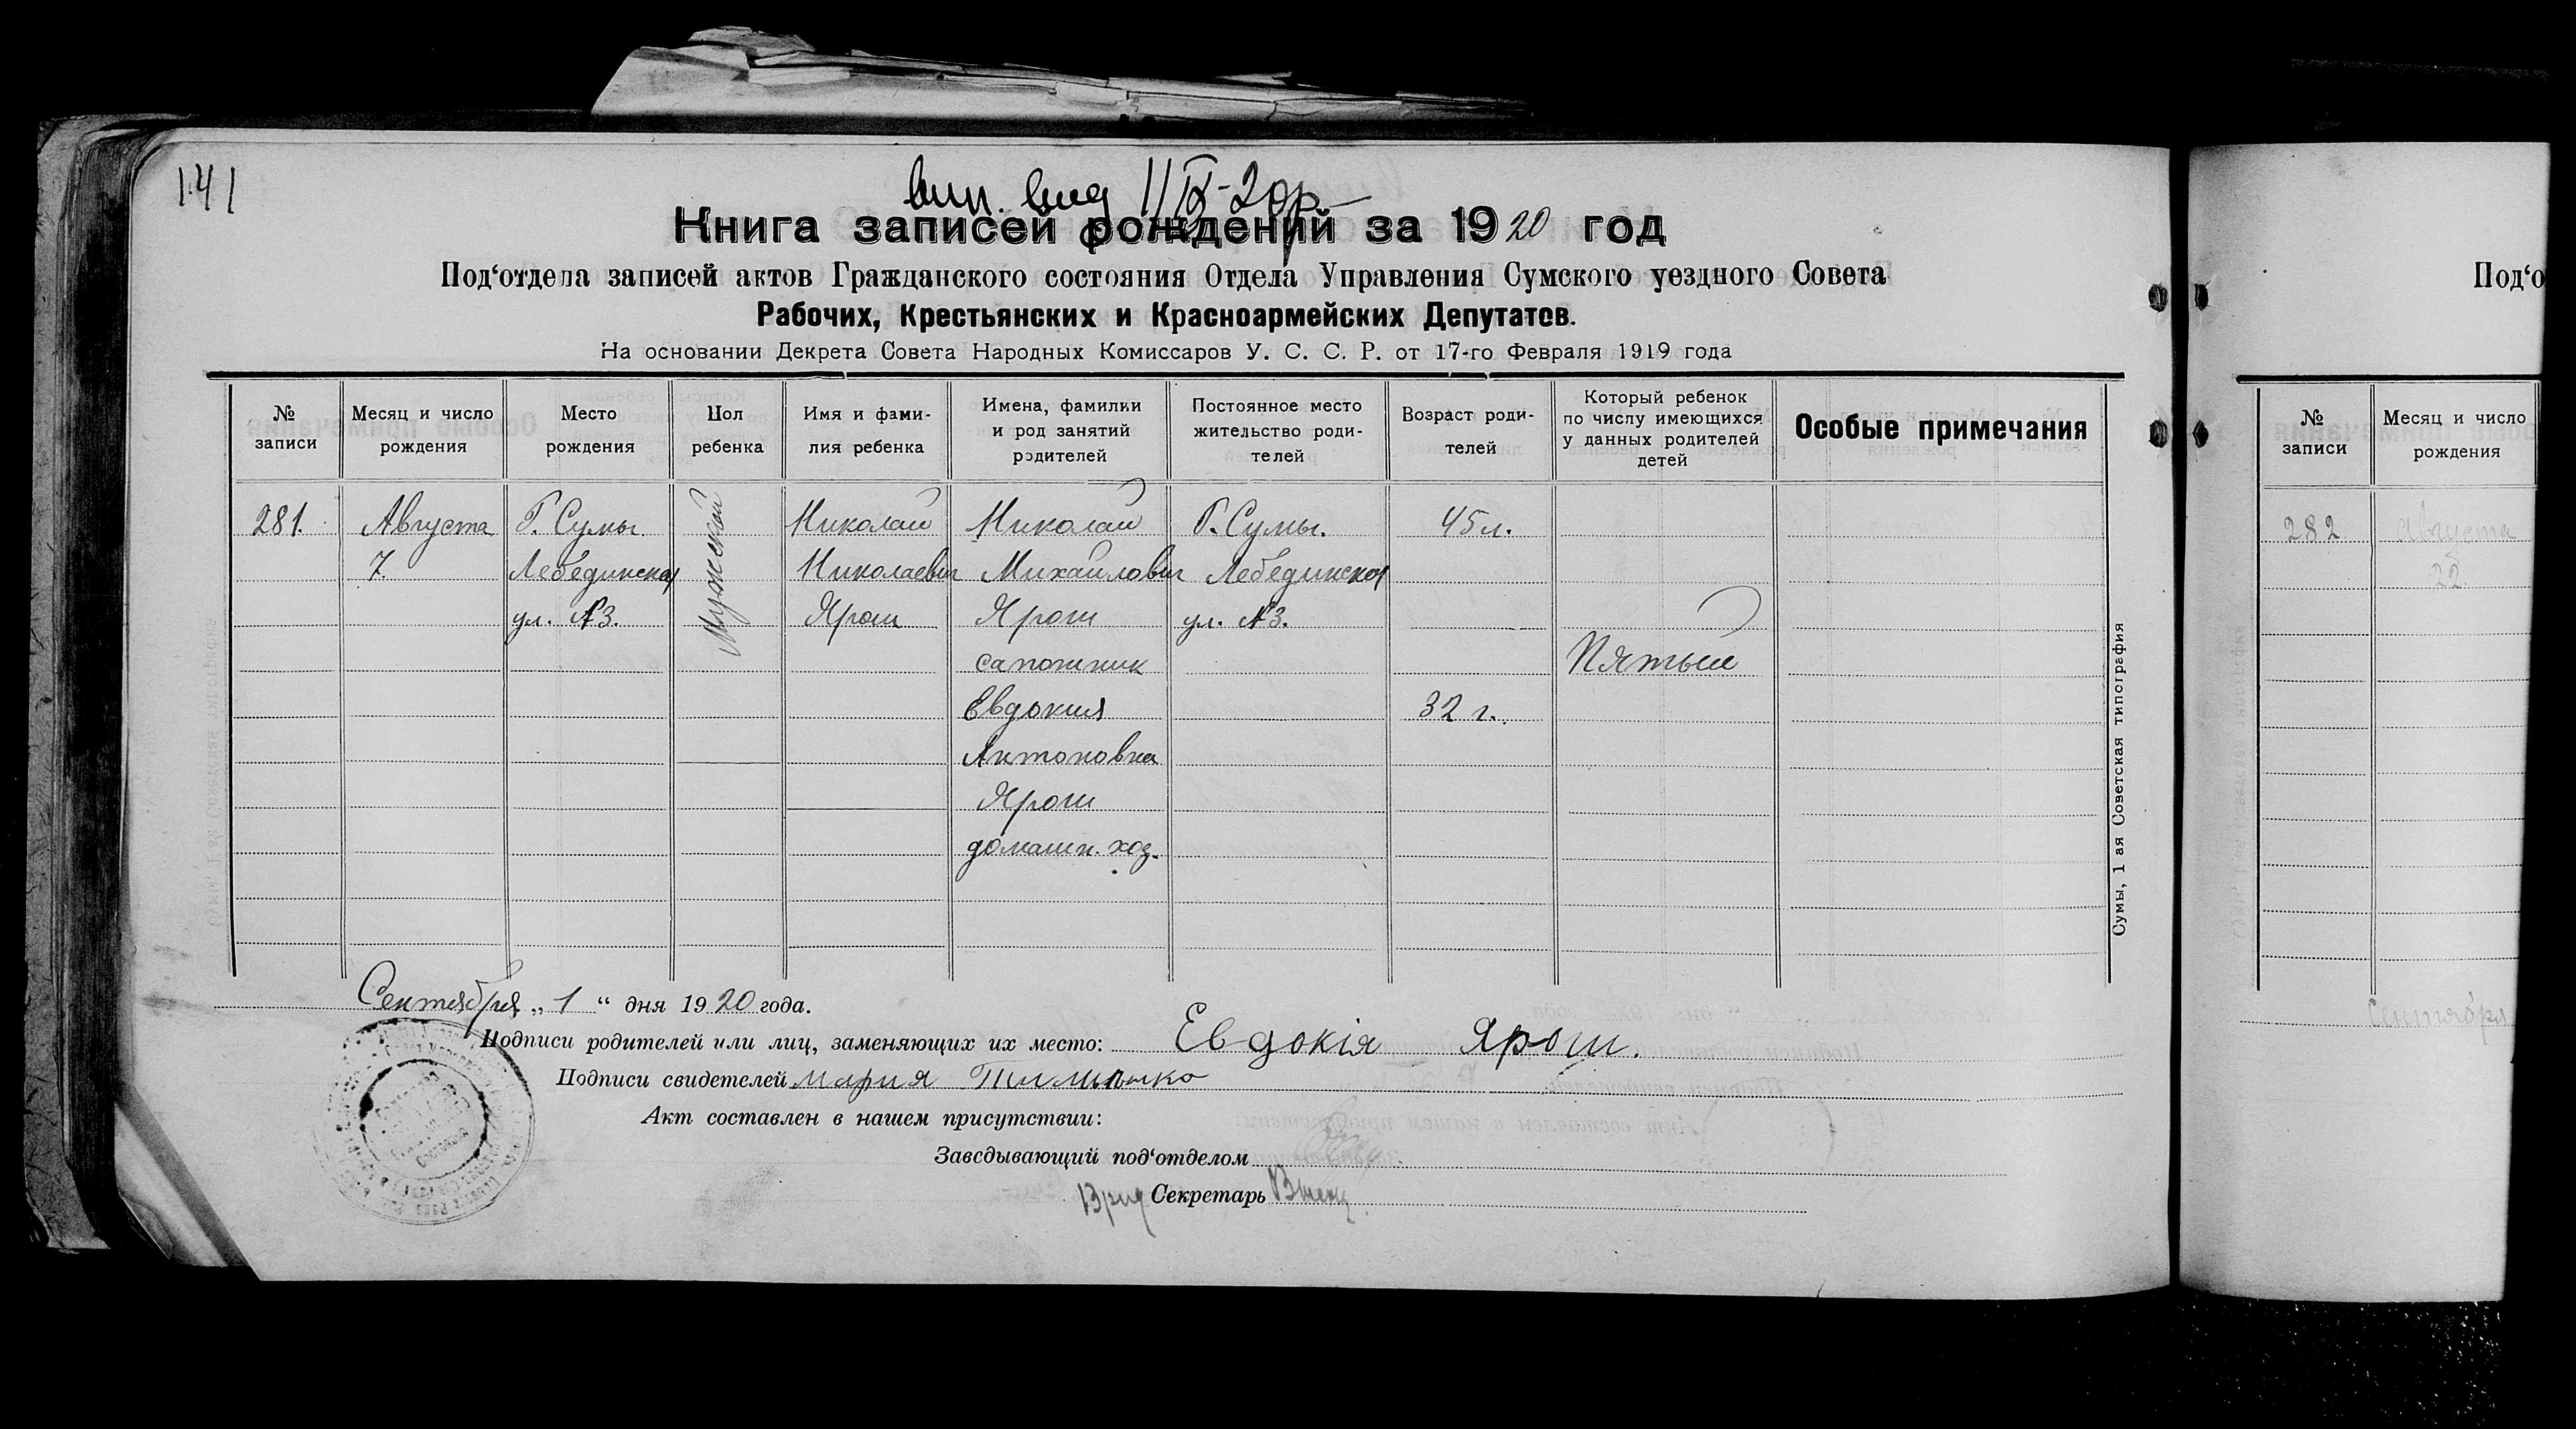 141
вып. вид 1/IX-20г
Книга записей рождений за 1920 год
Под‘отдела записей актов Гражданского состояния Отдела Управления Сумского уездного Совета
Рабочих, Крестьянских и Красноармейских Депутатов.
На основании Декрета Совета Народных Комиссаров У. С. С. Р. от 17-го Февраля 1919 года
№ записи
Месяц и число рождения
Место рождения
Пол ребенка
Имя и фами-
лия ребенка
Имена, фамилии
и род занятий
родителей
Постоянное место
жительство роди-
телей
Возраст роди-
телей
Который ребенок
по числу имеющихся
у данных родителей
детей
Особые примечания
281.
Августа
7.
Г. Сумы.
Лебединская
ул. №3.
Мужской
Николай
Николаевич
Ярош
Николай
Михайлович
Ярош
сапожник
Евдокия
Антоновна
Ярош
домашн. хоз.
Г. Сумы.
Лебединская
ул. №3.
45 л.
32 г.
Пятый
Сумы, 1 ая Советская типография
Сентября „ 1 “ дня 1920 года.
Подписи родителей или лиц, заменяющих их место: Евдокія Ярош.
Подписи свидетелей Мария
Акт составлен в нашем присутствии:
Заведывающий под‘отделом
Врид Секретарь
Под‘о
№ записи
Месяц и число рождения
282
Августа
22.
Сентября